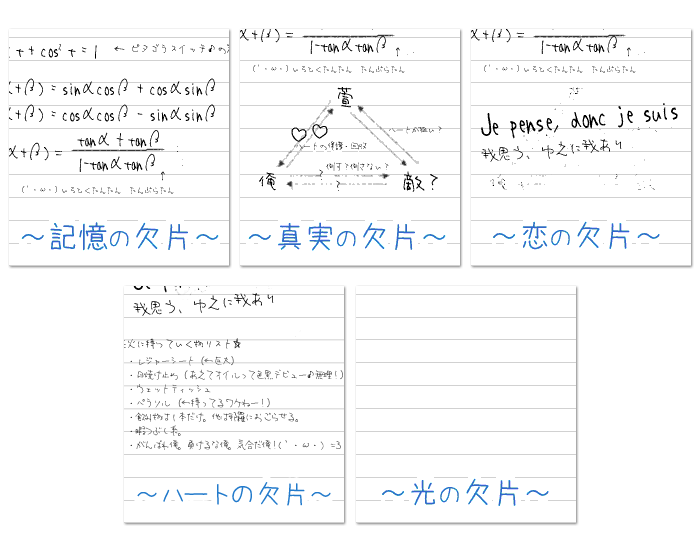 τ + cos² τ = 1 ← ピタゴラスイッチ♪の
(+β) = sinαcosβ + cosαsinβ
(+β) = cosαcosβ - sinαsinβ
α+β) = tanα + tanβ
1-tanα tanβ
↑
(´・ω・)しろとくたんたん たんぷらたん
～記憶の欠片～
α+(β) =
1-tanα tanβ ↑
(´・ω・)しろとくたんたん たんぷらたん
萱
♡♡
ハートが狙い?
ハートの保護・回収
倒す?倒さない?
俺 ? 敵?
～真実の欠片～
α+(β) =
1-tanα tanβ ↑
(´・ω・)しろとくたんたん たんぷらたん
Je pense, donc je suis
我思う、ゆえに我あり
～恋の欠片～
我思う、ゆえに我あり
次に持っていく物リスト☆
・レジャーシート (←巨大)
・日焼け止め (あえてオイルって色黒デビュー♪無理!)
・ウェットティッシュ
・パラソル (←持ってるワケねー!)
・飲み物は1本だけ。他は
におごらせる。
・暇つぶし系。
・がんばれ俺。負けるな俺。気合だ俺!(´・ω・) =3
～ハートの欠片～
～光の欠片～